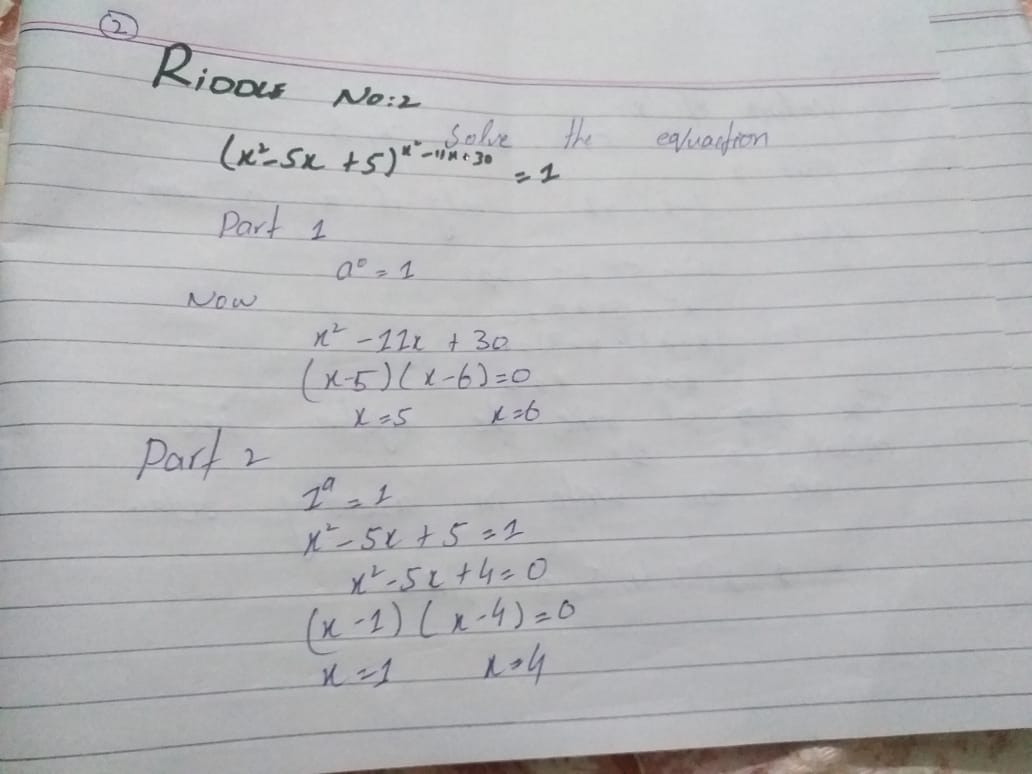 ②
RIDDLE NO:2
Solve the equaction
(x²-5x+5)^x²-11x+30 = 1
Part 1
a⁰ = 1
Now
x² - 11x + 30
(x-5)(x-6)=0
x=5 x=6
Part 2
1ᵃ = 1
x²-5x+5=1
x²-5x+4=0
(x-1)(x-4)=0
x=1 x=4